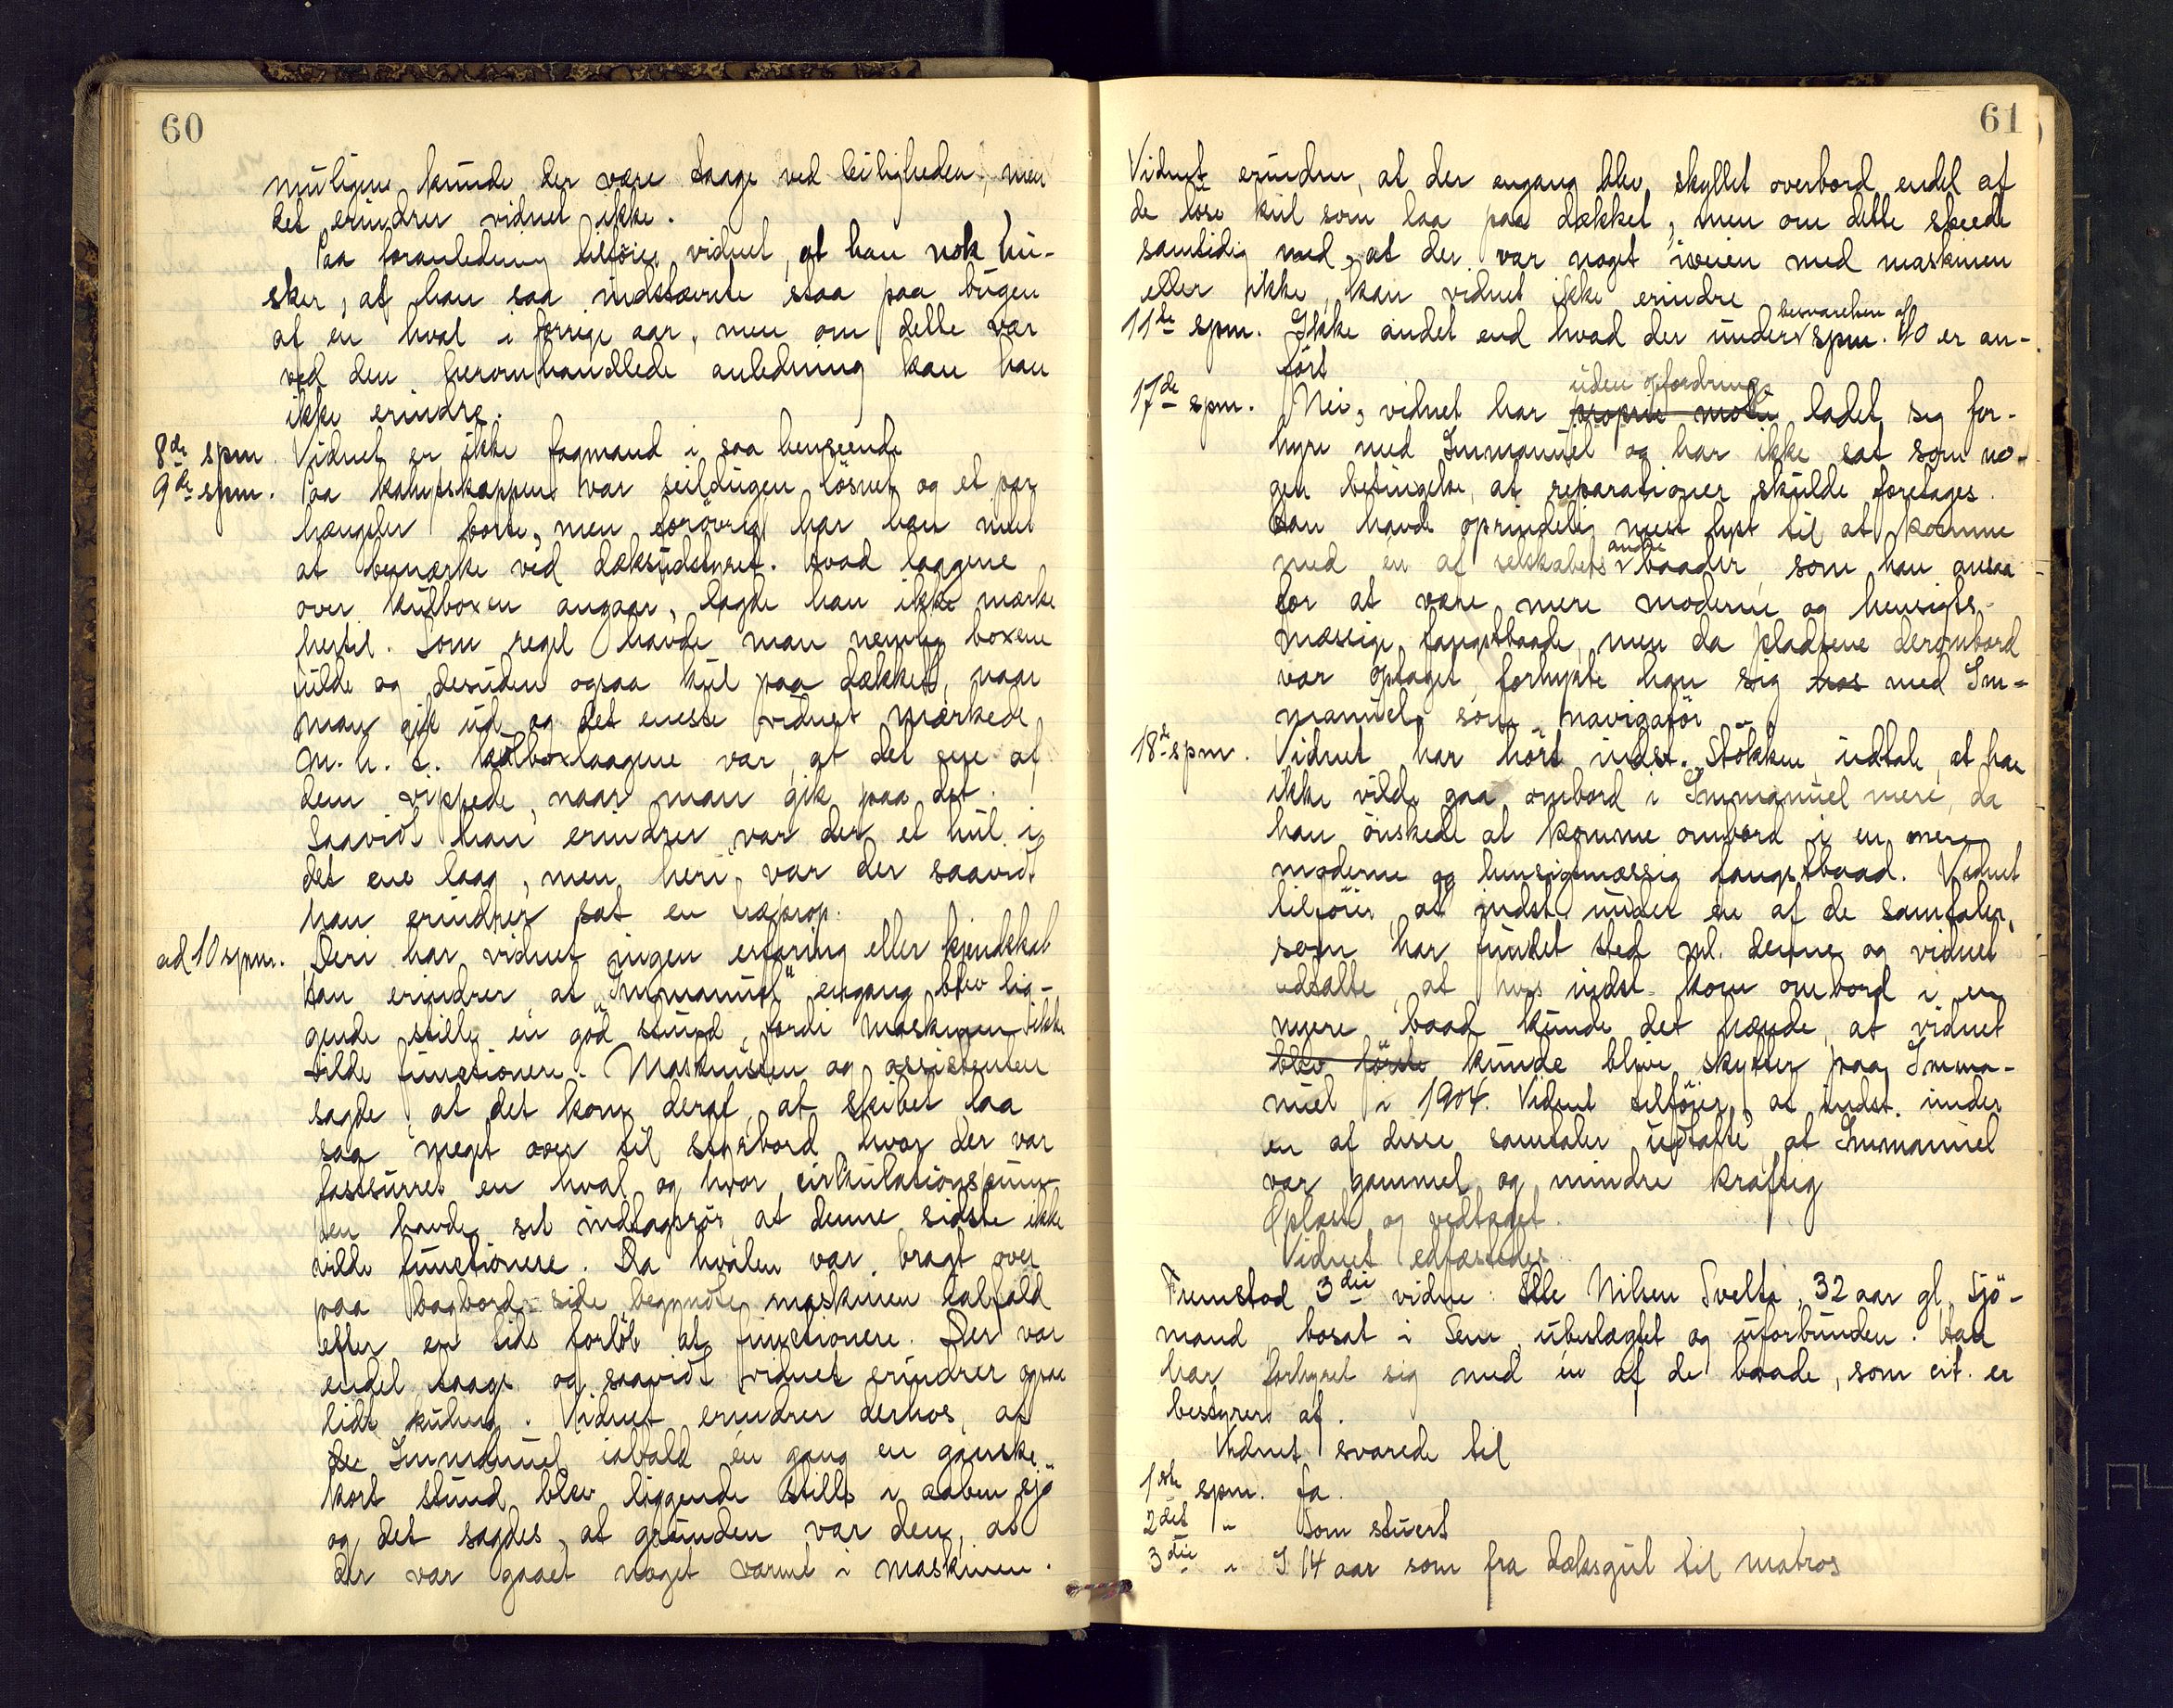 60
muligens kunde der være taage ved leiligheden, men
det erindrer vidnet ikke.
Paa foranledning tilföier vidnet, at han nok hu-
sker, at han saa indstævnte staa paa bugen
af en hval i forrige aar, men om dette var
ved den heromhandlede anledning kan han
ikke erindre.
8de spm. Vidnet er ikke fagmand i saa henseende
9de spm. Paa kahytskappen var seildugen lösnet og et par
hængsler borte, men forövrig har han intet
at bemærke ved dæksudstyret. Hvad laagene
over kulboxen angaar, lagde han ikke mærke
hertil. Som regel havde man nemlig boxene
fulde og desuden ogsaa kul paa dækket, naar
man gik ud og det eneste vidnet mærkede
m. h. t. kulboxlaagene var, at det ene af
dem vippede, naar man gik paa det.
Saavidt han erindrer var der et hul i
det ene laag, men heri var der saavidt
han erindrer sat en træprop.
ad 10 spm. Deri har vidnet ingen erfaring eller kjendskab
Han erindrer at "Immanuel" engang blev lig-
gende stille en god stund, fordi maskinen ikke
vilde functionere. Maskinisten og assistenten
sagde, at det kom deraf, at skibet laa
saa meget over til styrbord hvor der var
fastsurret en hval og hvor cirkulationspum-
pen havde sit indtagsrör, at denne sidste ikke
vilde functionere. Da hvalen var bragt over
paa bagbord-side begyndte maskinen ialfald
efter en tids forlöb at functionere. Der var
endel taage og saavidt vidnet erindrer ogsaa
lidt kuling. Vidnet erindrer derhos, at
de Immanuel ialfald én gang en ganske
kort stund blev liggende stille i aaben sjö
og det sagdes, at grunden var den, at
der var gaaet noget varmt i maskinen.
61
Vidnet erindrer, at der engang blev skyllet overbord endel af
de löse kul som laa paa dækket, men om dette skeede
samtidig med, at der var noget iveien med maskinen
eller ikke, kan vidnet ikke erindre
besvarelsen af
11te spm. Ikke andet end hvad der under spm. 10 er an-
fört
uden opfordring
17de spm. Nei, vidnet har proprio motu ladet sig for-
hyre med Immanuel og har ikke sat som no-
gen betingelse, at reparationer skulde foretages.
Han havde oprindelig mest lyst til at komme
andre
med en af selskabets baader, som han ansaa
for at være mere moderne og hensigts-
mæssige fangstbaade, men da pladsene derombord
var optaget, forhyrte han sig hos med Im-
manuel som navigatör
18de spm. Vidnet har hört indst. Stökken udtale, at han
ikke vilde gaa ombord i Immanuel mere, da
han önskede at komme ombord i en mere
moderne og hensigtmæssig fangstbaad. Vidnet
tilföier, at indst. under en af de samtaler,
som har fundet sted ml. denne og vidnet
udtalte, at hvis indst. kom ombord i en
nyere baad kunde det hænde, at vidnet
blev förste kunde blive skytter paa Imma-
nuel i 1904. Vidnet tilföier, at indst. under
en af disse samtaler udtalte at Immanuel
var gammel og mindre kraftig
Oplæst og vedtaget.
Vidnet edfæstedes.
Fremstod 3die vidne: Elle Nilsen Tvelti, 32 aar gl. Sjö-
mand, bosat i Sem, ubeslægtet og uforbunden. Han
har forhyret sig med en af de baade, som cit. er
bestyrer af.
Vidnet svarede til
1ste spm. Ja.
2det " Som stuert
3die " I 14 aar som fra dæksgut til matros